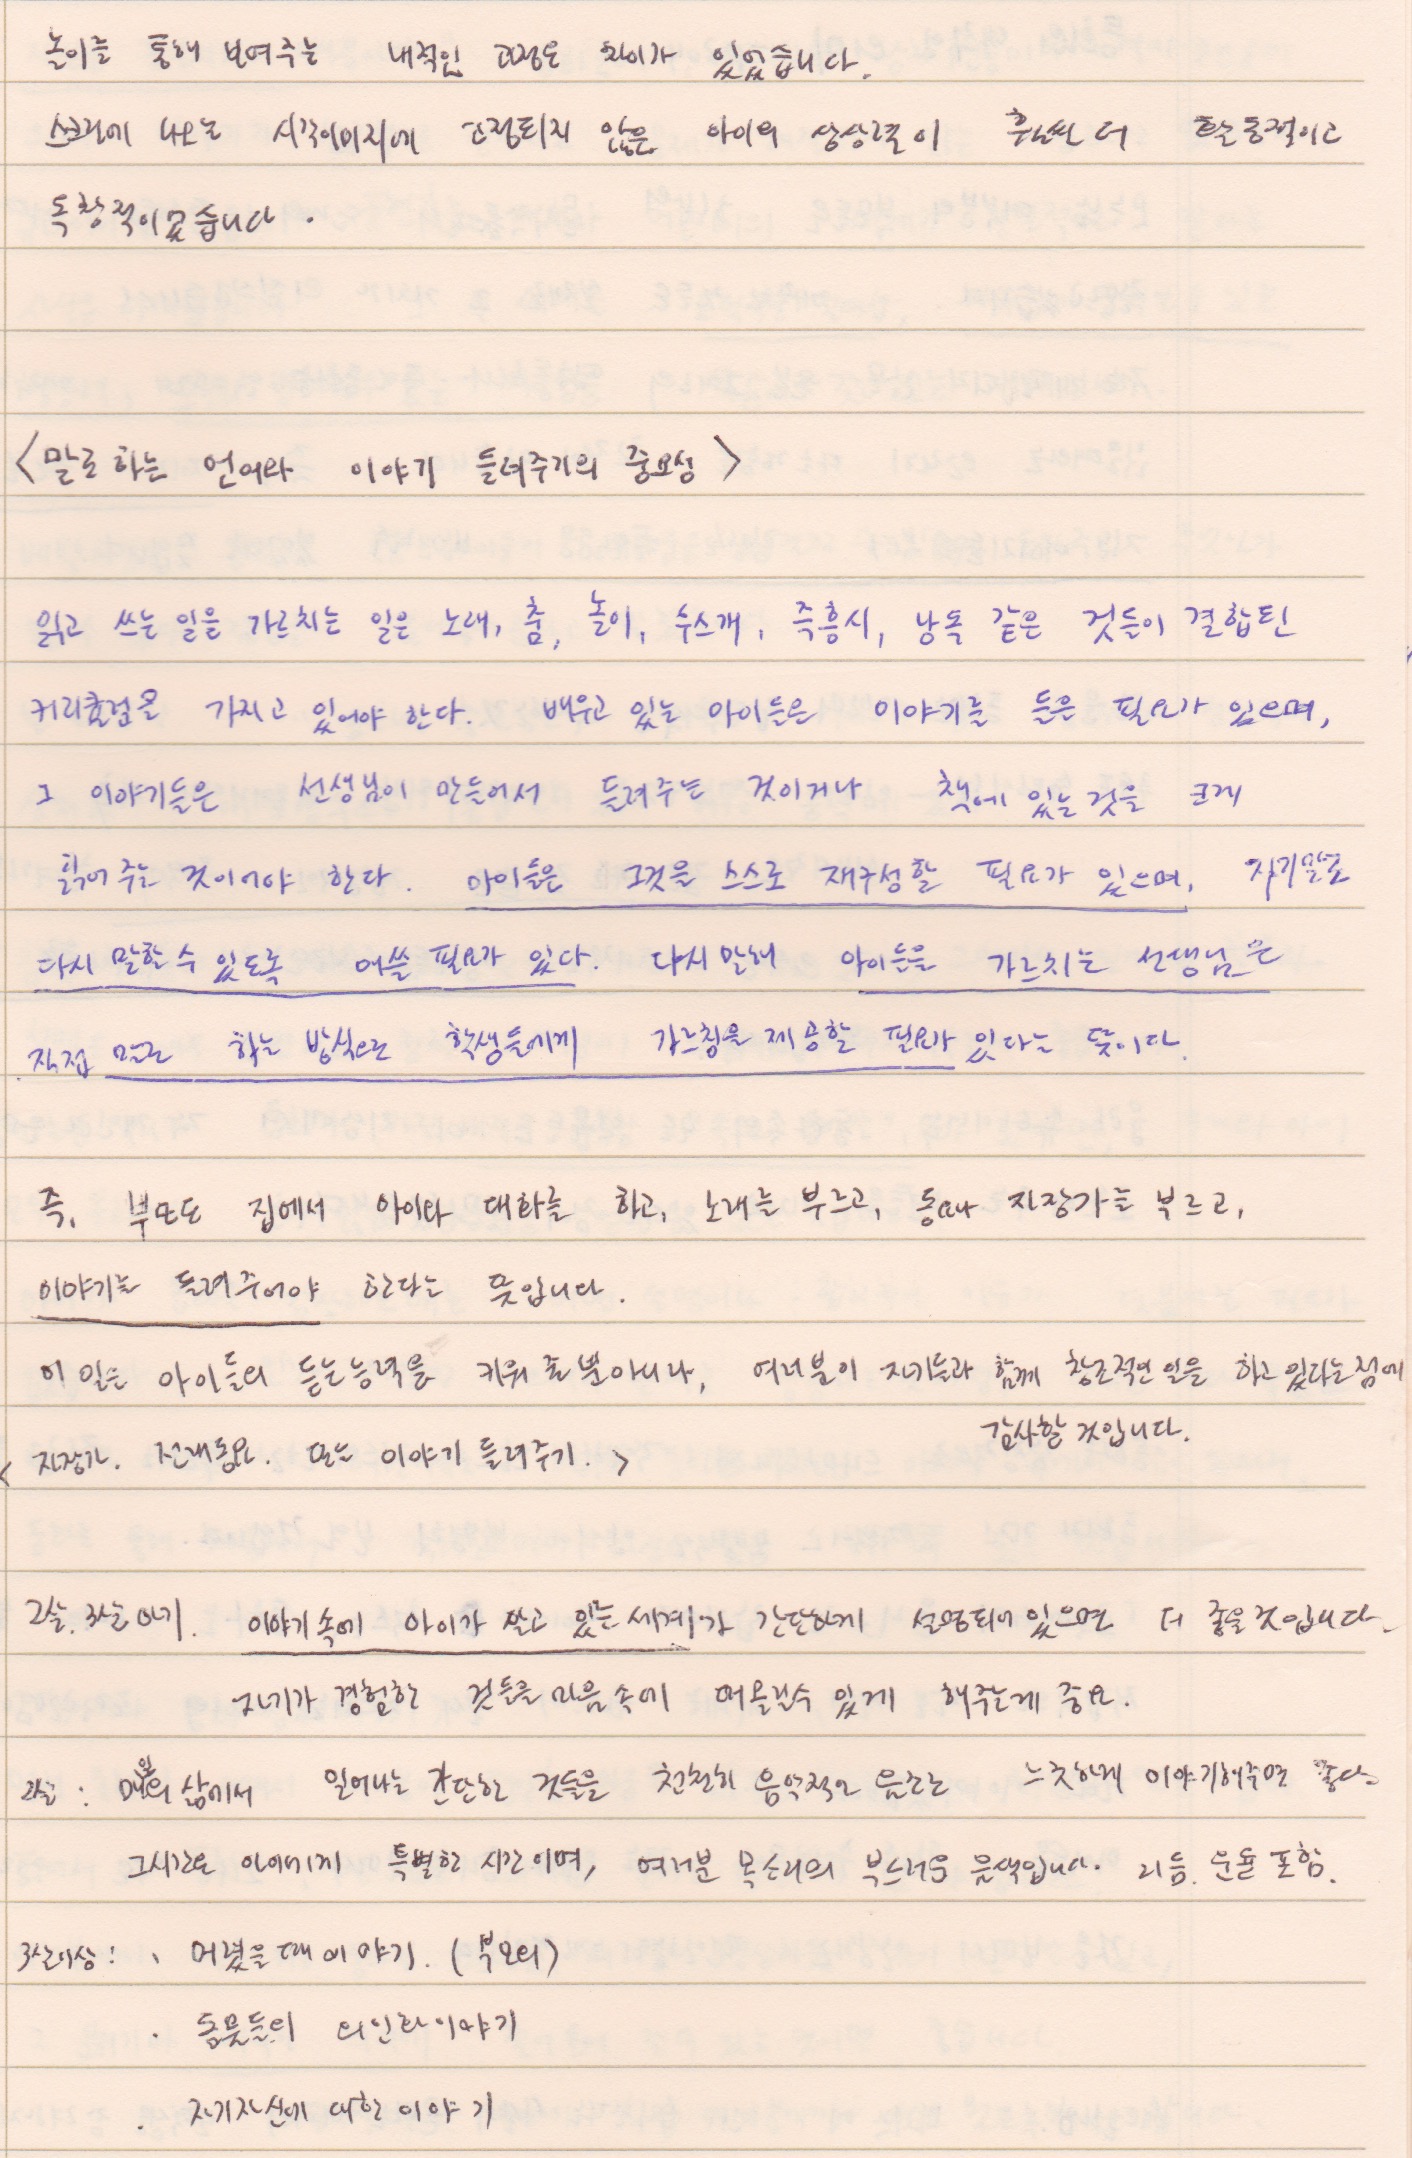 놀이를 통해 보여주는 내적인 과정은 차이가 있었습니다.
스크린에 나오는 시각이미지에 고정되지 않은 아이의 상상력이 훨씬 더 활동적이고
독창적이었습니다.
<말로 하는 언어와 이야기 들려주기의 중요성>
읽고 쓰는 일을 가르치는 일은 노래, 춤, 놀이, 우스개, 즉흥시, 낭독 같은 것들이 결합된
커리큘럼을 가지고 있어야 한다. 배우고 있는 아이들은 이야기를 들을 필요가 있으며,
그 이야기들은 선생님이 만들어서 들려주는 것이거나 책에 있는 것을 크게
읽어 주는 것이어야 한다. 아이들은 그것을 스스로 재구성할 필요가 있으며, 자기말로
다시 말할 수 있도록 애쓸 필요가 있다. 다시 말해 아이들을 가르치는 선생님은
직접 말로 하는 방식으로 학생들에게 가르침을 제공할 필요가 있다는 뜻이다.
즉, 부모도 집에서 아이와 대화를 하고, 노래를 부르고, 동요나 자장가를 부르고,
이야기를 들려주어야 한다는 뜻입니다.
이 일은 아이들의 듣는 능력을 키워 줄 뿐 아니라, 여러분이 자기들과 함께 창조적인 일을 하고 있다는 점에
감사할 것입니다.
<자장가. 전래동요. 또는 이야기 들려주기.>
2살. 3살 아기. 이야기 속에 아이가 살고 있는 세계가 간단하게 설명되어 있으면 더 좋을 것입니다.
자기가 경험한 것들을 마음 속에 떠올릴수 있게 해주는게 중요.
2살: 매일의 삶에서 일어나는 간단한 것들을 천천히 음악적인 음조로 느긋하게 이야기해주면 좋다.
그시간은 아이에게 특별한 시간이며, 여러분 목소리의 부드러운 음색입니다. 리듬. 운율 포함.
3살이상: · 어렸을 때 이야기. (부모의)
· 동물들의 의인화이야기
· 자기자신에 대한 이야기